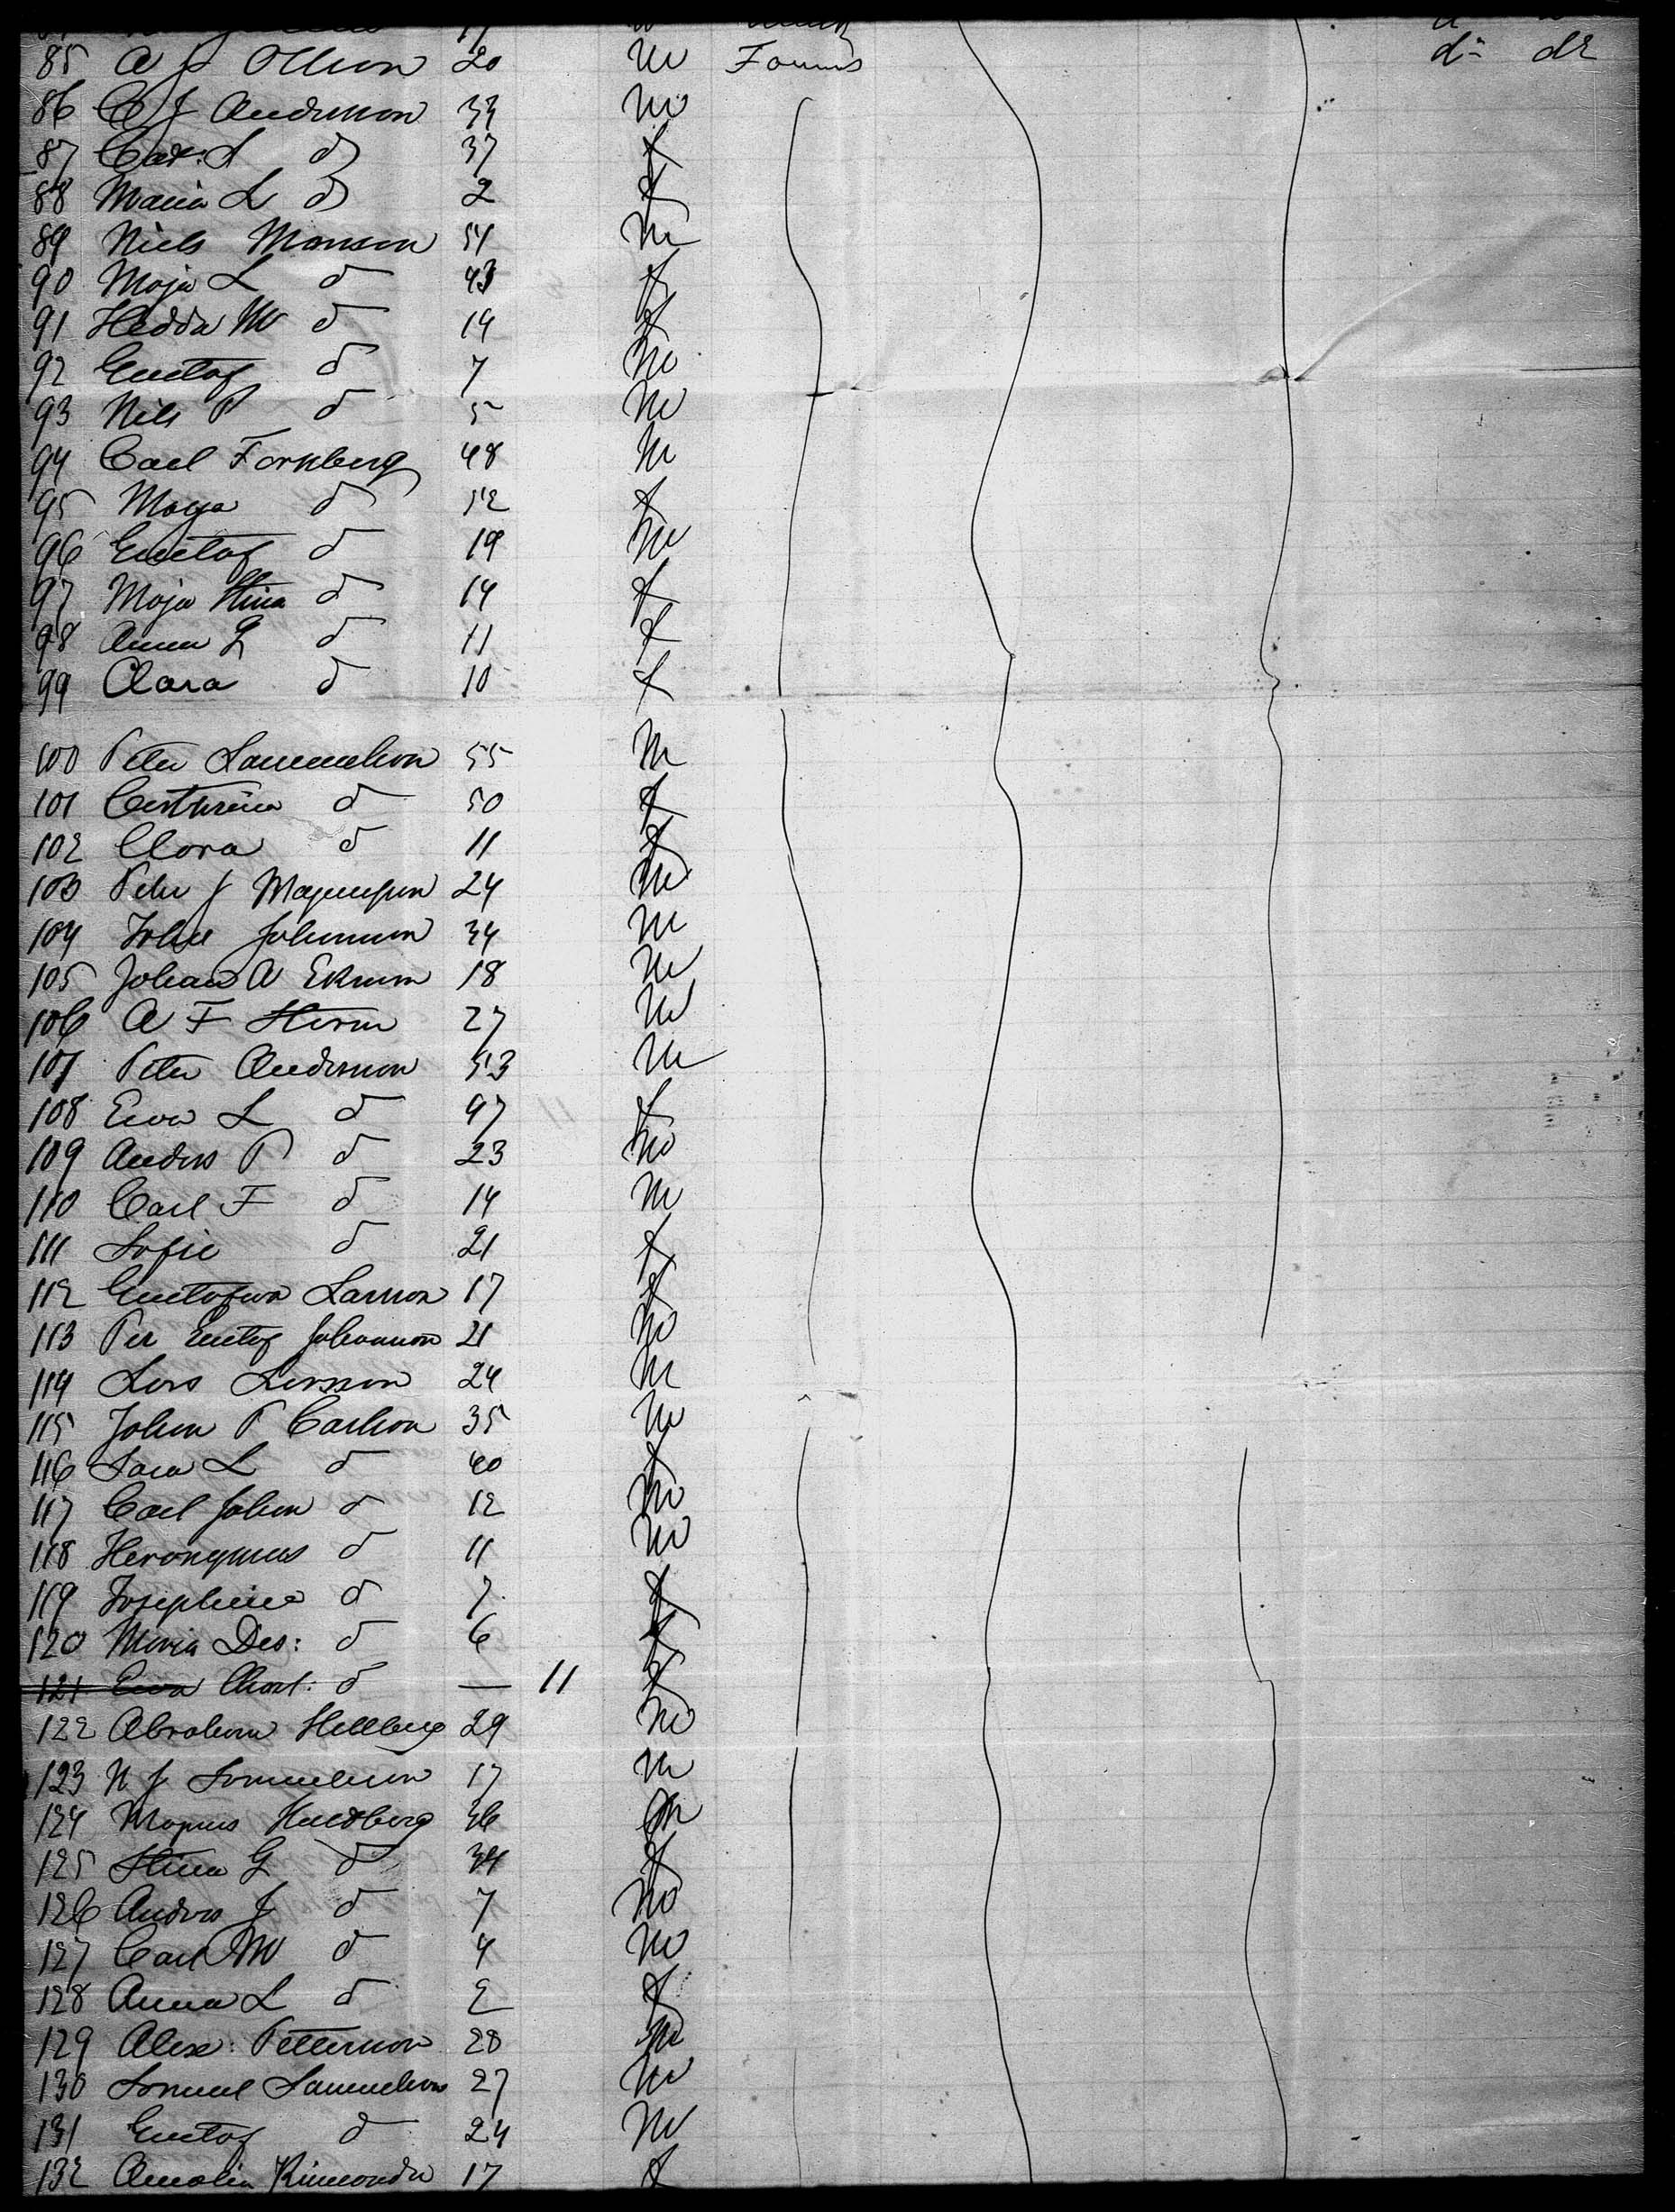 85 A J Ollson 20 m Farms do do
86 C J Anderson 33 m
87 Cat: S d 37 f
88 Maria L d 2 f
89 Niels Monson 54 m
90 Moja L d 43 f
91 Hedda M d 19 f
92 Gustaf d 7 m
93 Nils P d 5 m
94 Carl Forkberg 48 m
95 Maya d 52 f
96 Gustaf d 19 m
97 Moja Stina d 14 f
98 Anna G d 11 f
99 Clara d 10 f
100 Peter Samuelson 55 m
101 Cathrina d 50 f
102 Clara d 11 f
103 Peter J Magnuson 24 m
104 Johan Johanson 34 m
105 Johan A Ekman 18 m
106 A F Strom 27 m
107 Peter Anderson 53 m
108 Eva L d 47 f
109 Anders P d 23 m
110 Carl F d 14 m
111 Sofie d 21 f
112 Gustafva Larson 17 f
113 Per Gustaf Johanson 21 m
114 Lars Larsson 24 m
115 Johan P Carlson 35 m
116 Sara L d 40 f
117 Carl Johan d 12 m
118 Heronymus d 11 m
119 Josephina d 7 f
120 Maria Des: d 6 f
121 Eva Charl: d — 11 f
122 Abraham Hellberg 29 m
123 N J Samuelson 17 m
124 Magnus Hultberg 36 m
125 Stina G d 34 f
126 Anders J d 7 m
127 Carl M d 4 m
128 Anna L d 2 f
129 Alex: Petterson 28 m
130 Samuel Samuelson 27 m
131 Gustaf d 24 m
132 Amalia 17 f